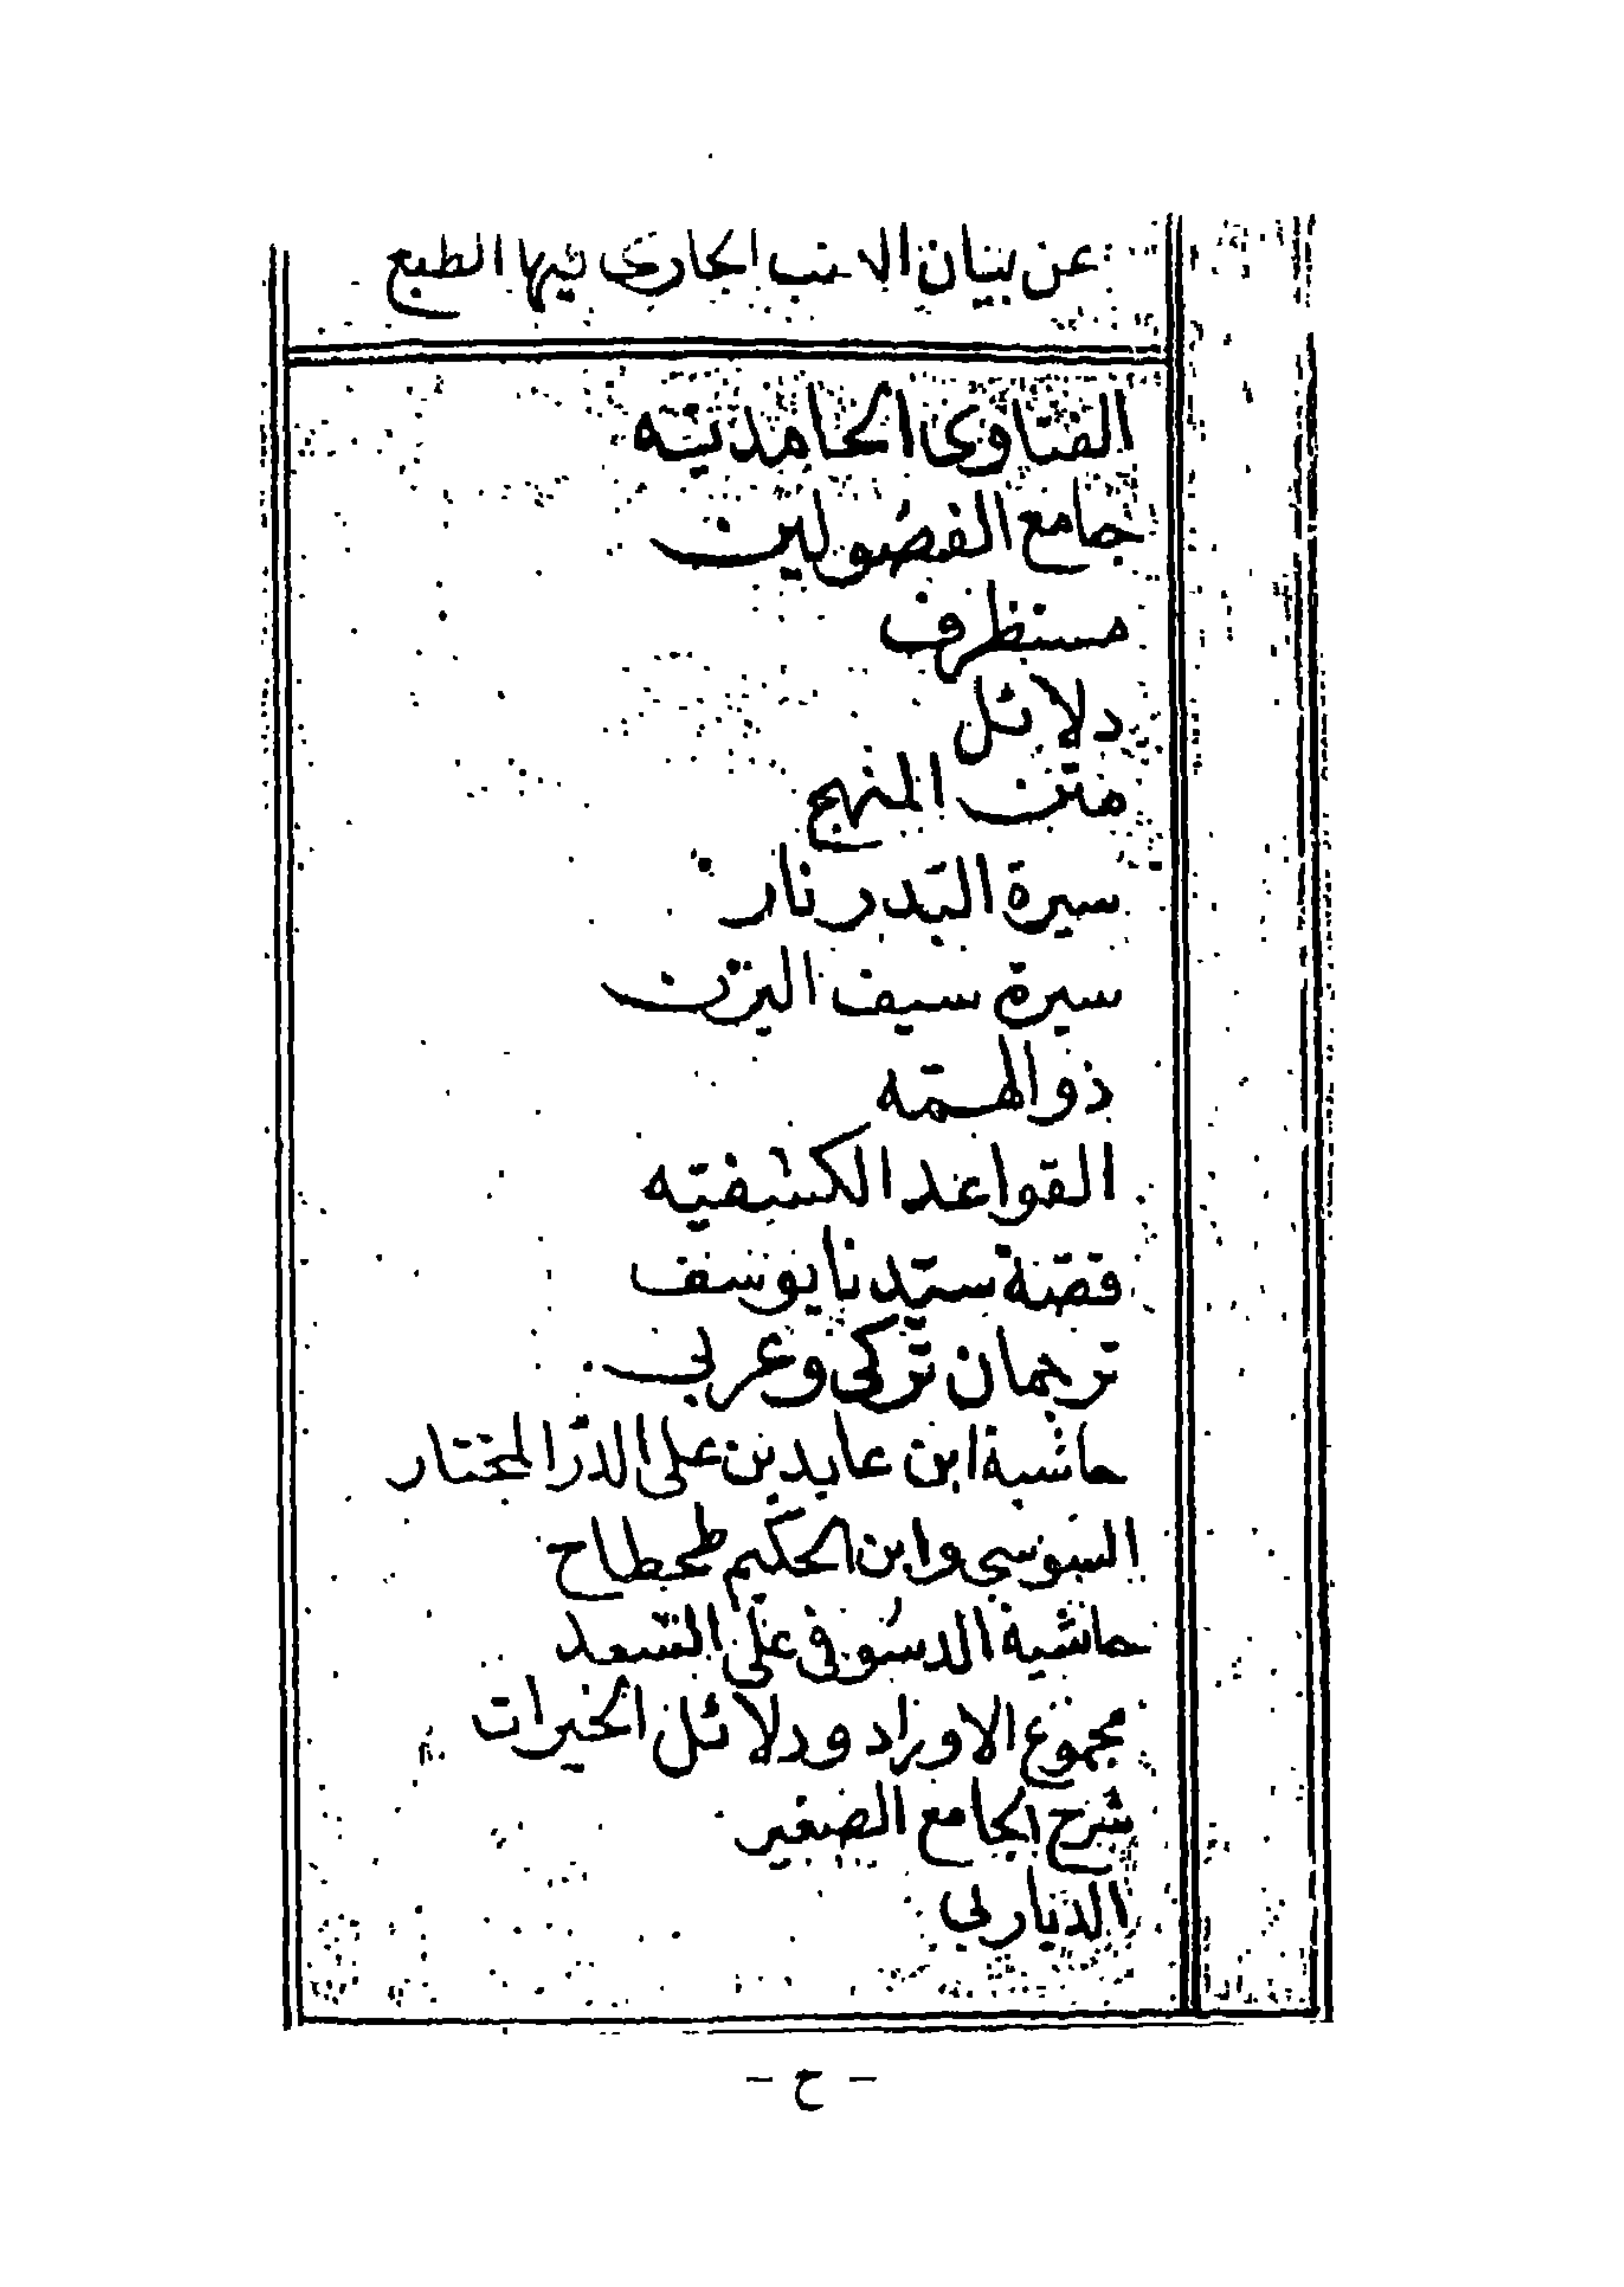 عن بيان الكتب الجارى فيها الطبع
الفتاوى الحامديّه
جامع الفصُولين
مستظرف
دلائل
متن المنهج
سيرة البَدر نار
سيرة سيف اليزن
ذو الهمّه
القواعد الكشفيّه
قصّة سيّدنا يوسف
ترجمان تركى وعربى
حاشية ابن عابدين على الدرّ المختار
السنوسي وابن الحكيم طحطاح
حاشية الدسُوقى على السّعد
مجموع الاوراد ودلائل الخيرات
شرح الجامع الصغير
الديار بى
- ح -